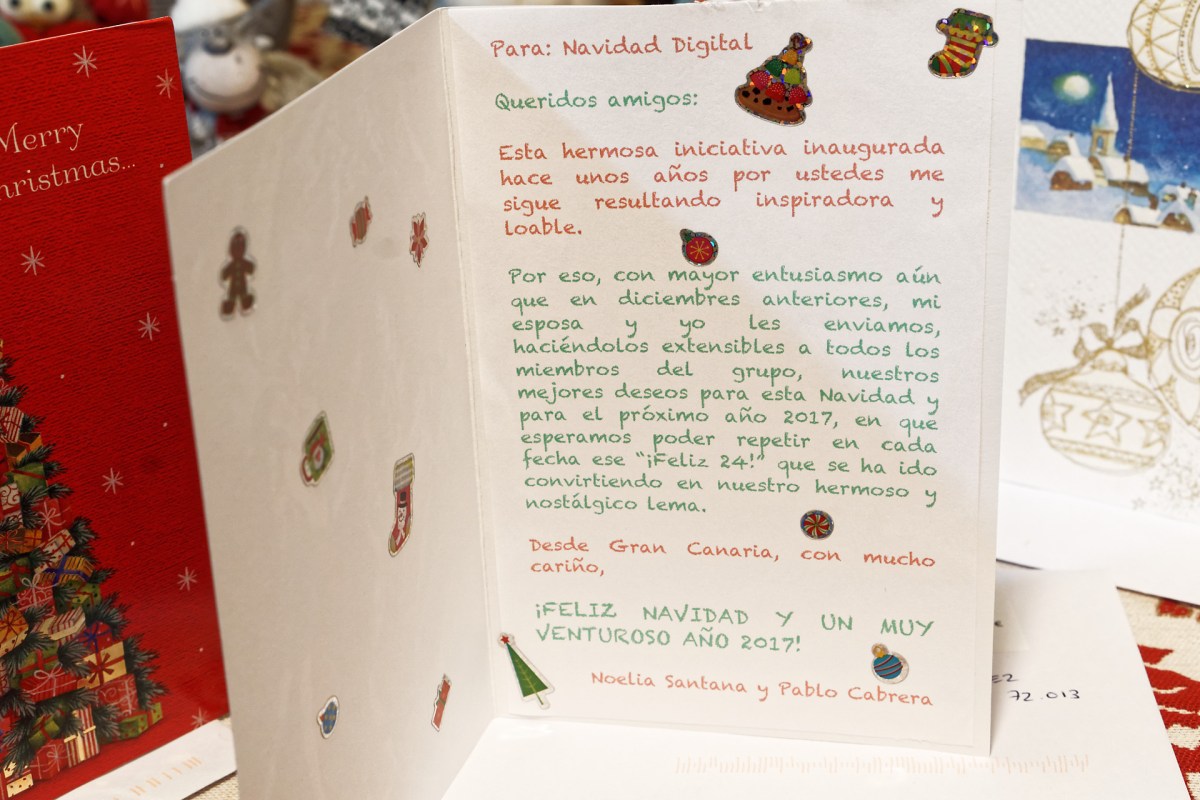 Merry
Christmas...
Para: Navidad Digital
Queridos amigos:
Esta hermosa iniciativa inaugurada
hace unos años por ustedes me
sigue resultando inspiradora y
loable.
Por eso, con mayor entusiasmo aún
que en diciembres anteriores, mi
esposa y yo les enviamos,
haciéndolos extensibles a todos los
miembros del grupo, nuestros
mejores deseos para esta Navidad y
para el próximo año 2017, en que
esperamos poder repetir en cada
fecha ese “¡Feliz 24!” que se ha ido
convirtiendo en nuestro hermoso y
nostálgico lema.
Desde Gran Canaria, con mucho
cariño,
¡FELIZ NAVIDAD Y UN MUY
VENTUROSO AÑO 2017!
Noelia Santana y Pablo Cabrera
72.013